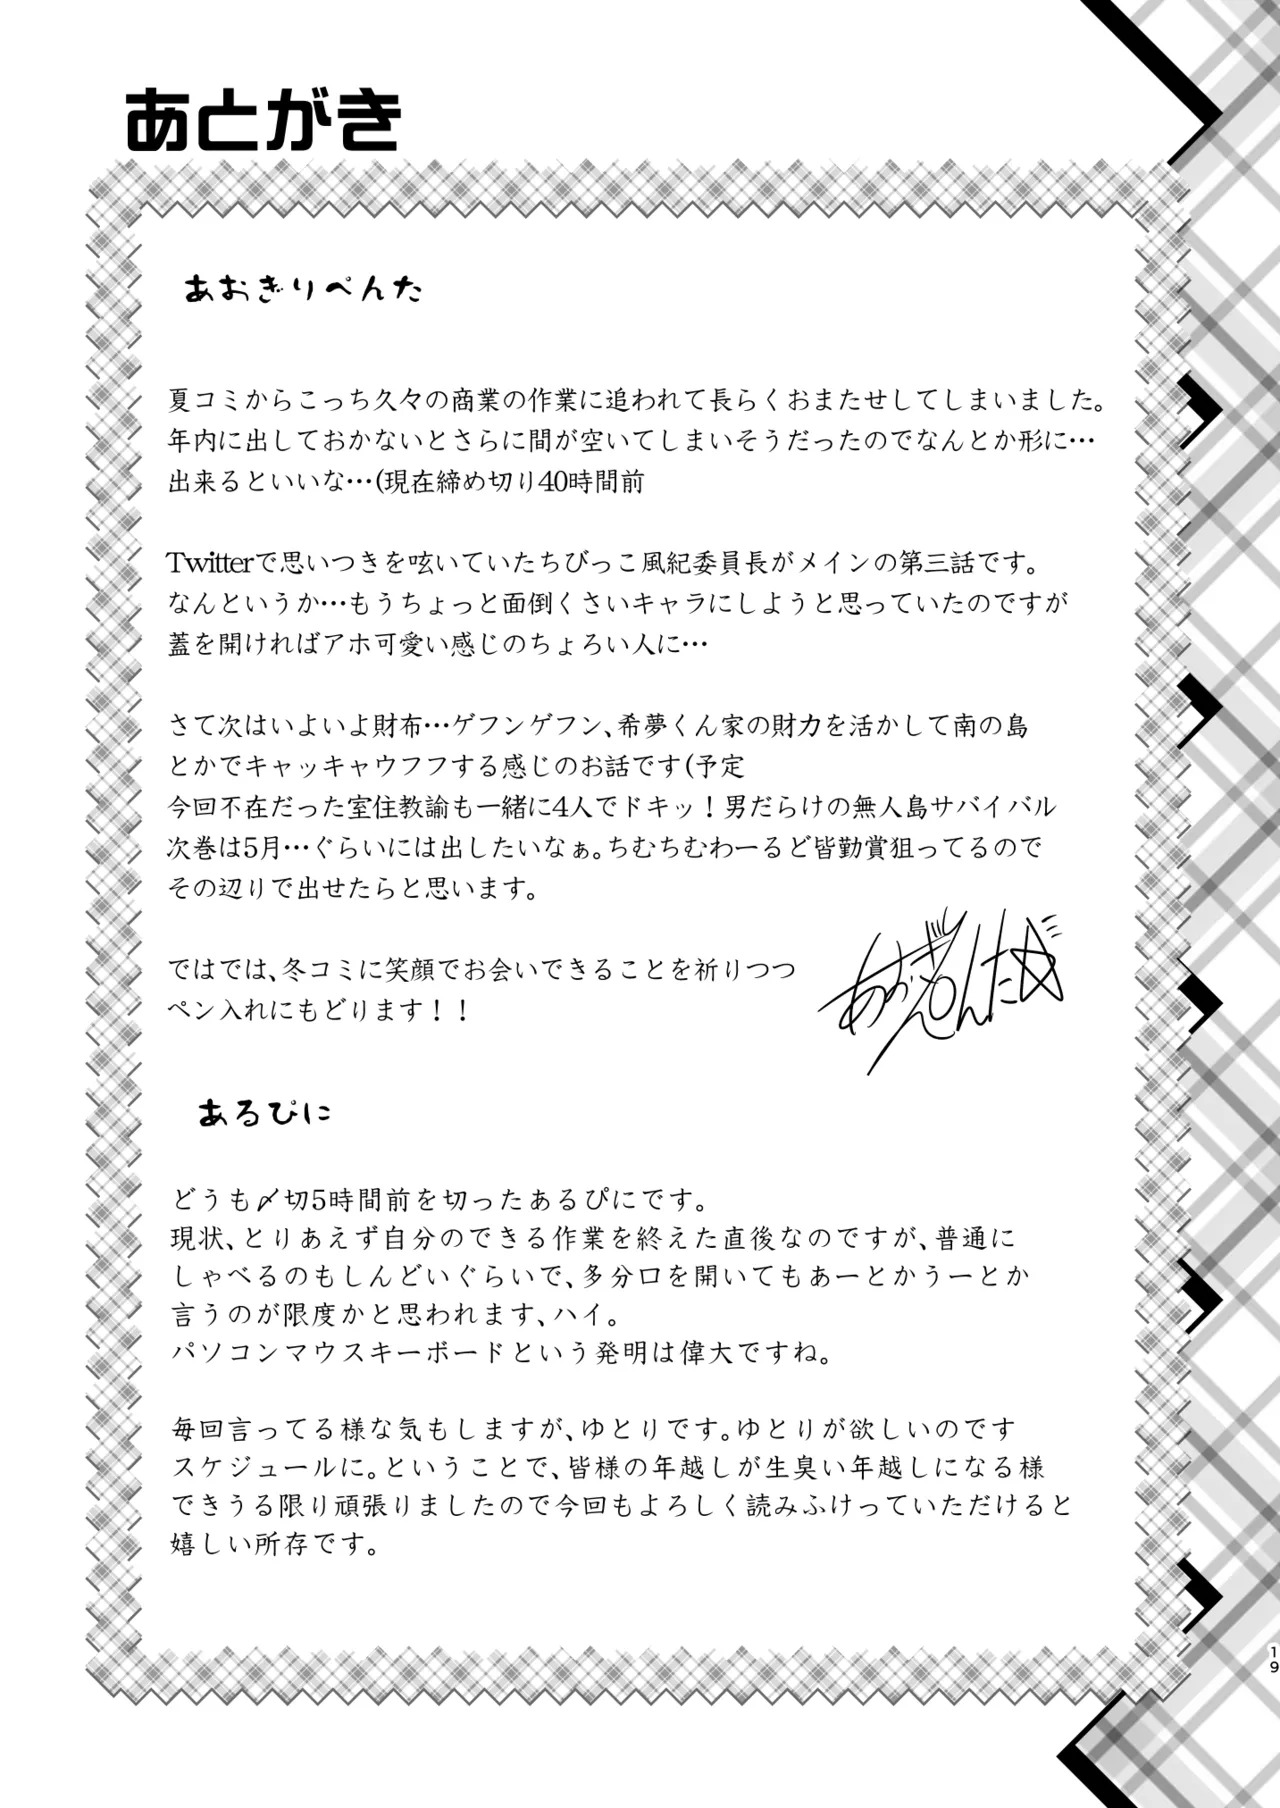 あとがき
あおぎりぺんた
夏コミからこっち久々の商業の作業に追われて長らくおまたせしてしまいました。
年内に出しておかないとさらに間が空いてしまいそうだったのでなんとか形に…
出来るといいな…(現在締め切り40時間前
Twitterで思いつきを呟いていたちびっこ風紀委員長がメインの第三話です。
なんというか…もうちょっと面倒くさいキャラにしようと思っていたのですが
蓋を開ければアホ可愛い感じのちょろい人に…
さて次はいよいよ財布…ゲフンゲフン、希夢くん家の財力を活かして南の島
とかでキャッキャウフフする感じのお話です(予定
今回不在だった室住教諭も一緒に4人でドキッ！男だらけの無人島サバイバル
次巻は5月…ぐらいには出したいなぁ。ちむちむわーるど皆勤賞狙ってるので
その辺りで出せたらと思います。
ではでは、冬コミに笑顔でお会いできることを祈りつつ
ペン入れにもどります！！
あおぎりぺんた☆
あるぴに
どうも〆切5時間前を切ったあるぴにです。
現状、とりあえず自分のできる作業を終えた直後なのですが、普通に
しゃべるのもしんどいぐらいで、多分口を開いてもあーとかうーとか
言うのが限度かと思われます、ハイ。
パソコンマウスキーボードという発明は偉大ですね。
毎回言ってる様な気もしますが、ゆとりです。ゆとりが欲しいのです
スケジュールに。ということで、皆様の年越しが生臭い年越しになる様
できうる限り頑張りましたので今回もよろしく読みふけっていただけると
嬉しい所存です。
19